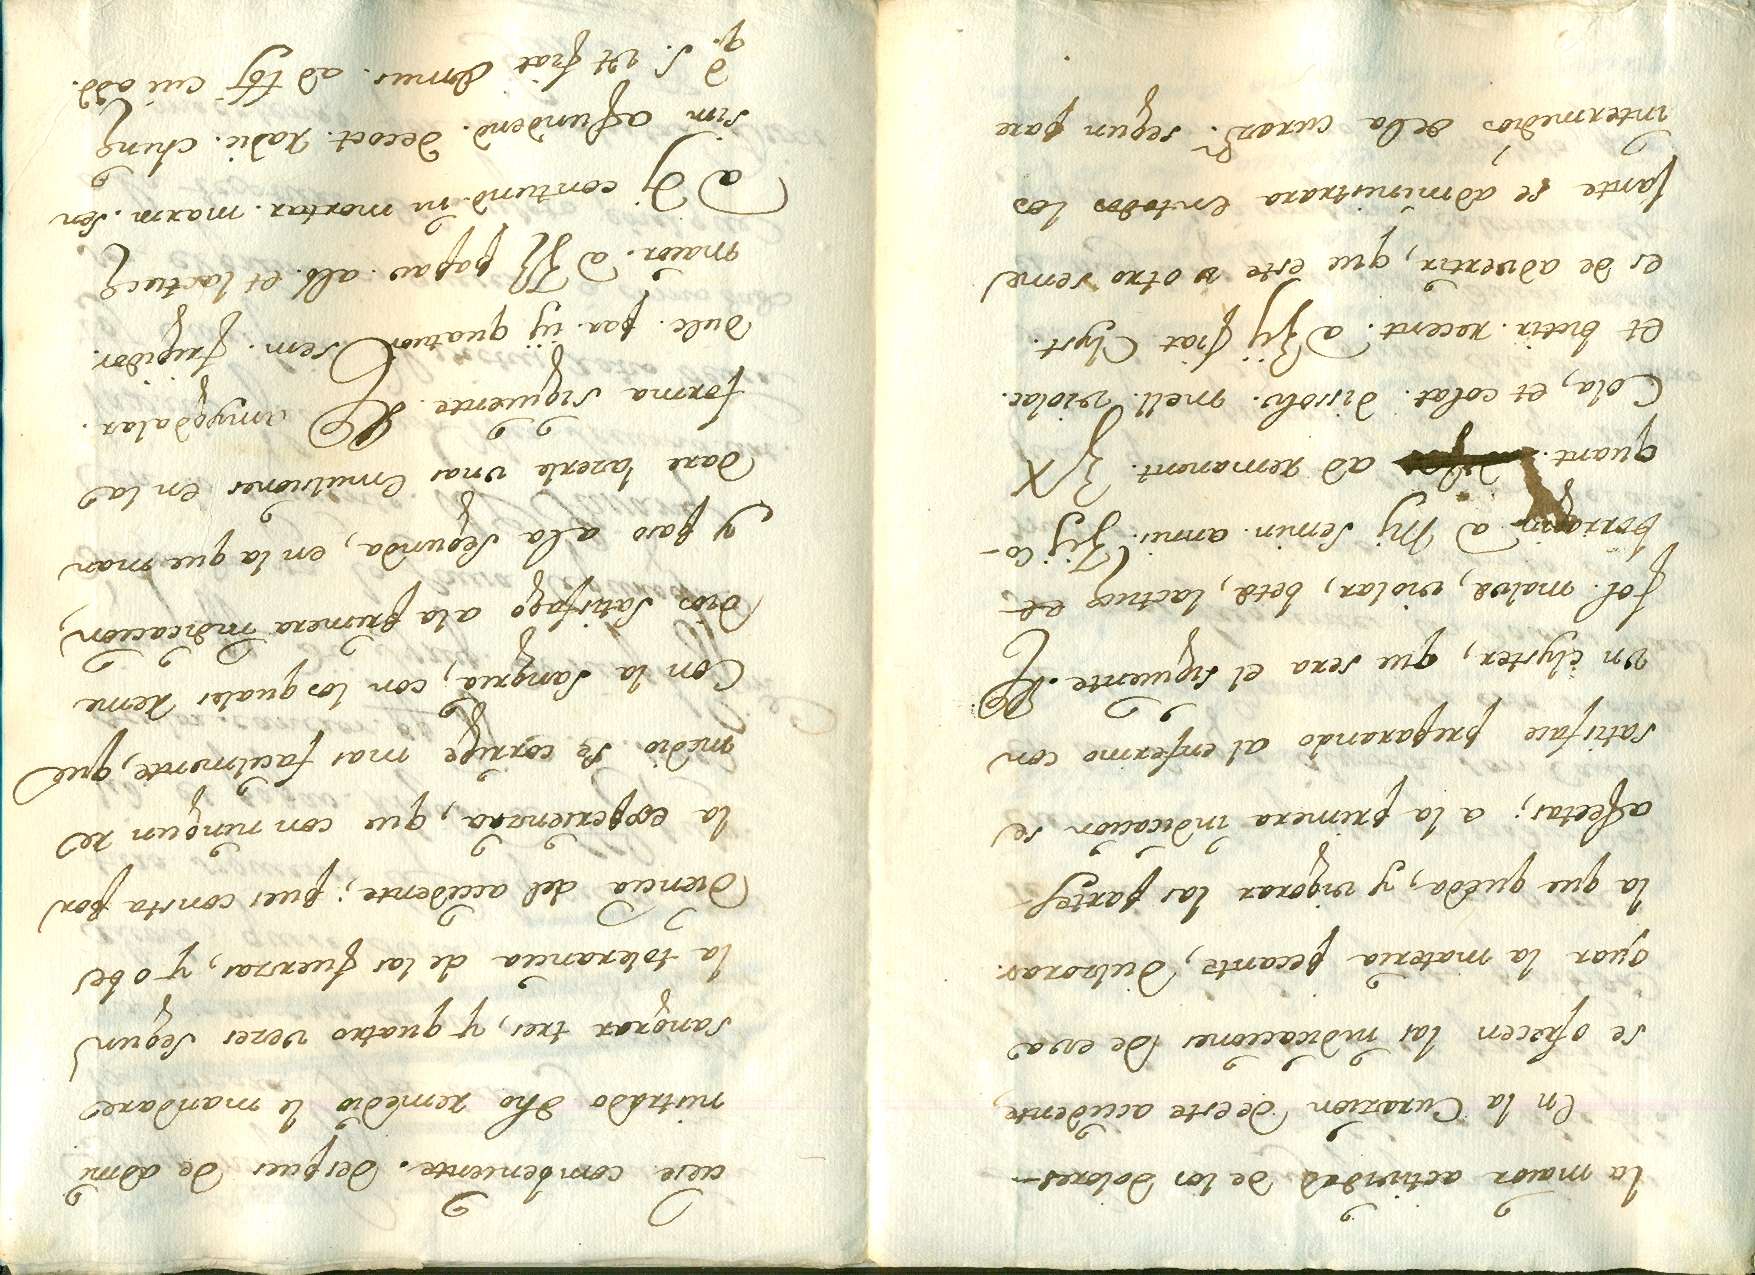 la maior actividad de los dolores
En la Curazion de este accidente,
se ofrecen las indicaciones de eva
quar la materia pecante, dulzorar
la que queda, y vigorar las partes
afectas; a la primera indicacion se
satisface preparando al enfermo con
vn clyster, que sera el siguiente. R
fol. malvæ, violar, betæ, lactucæ et
borragin a Mj semin. annisi Zij co-
quant. ad remanent. ℥ X
Cola, et colat. dissolv. mell. violac.
et butir. recent. a ℥ij fiat Clyst.
es de advertir, que este v otro seme
jante se administrara en todos los
intermedios de la curazn. segun pare
ciese combeniente. Despues de admi
nistrado dho remedio le mandare
sangrar tres, y quatro vezes segun
la tolerancia de las fuerzas, y obe
diencia del accidente; pues consta por
la experiencia, que con ningun re
medio se corrige mas facilmente, que
Con la sangria, con los quales reme
dios satisfago a la primera indicacion,
y paso a la segunda, en la que man
dare hazerle vnas emulsiones en la
forma siguiente. R amygdalar.
dulc. par. iij quatuor sem. frigidor.
maior. a ℥ß papav. alb. et lactucæ
a ʒj contund. in mortar. marm. sen
sim affundend. decoct. radic. chinæ
q. s. et fiat ad cui add.